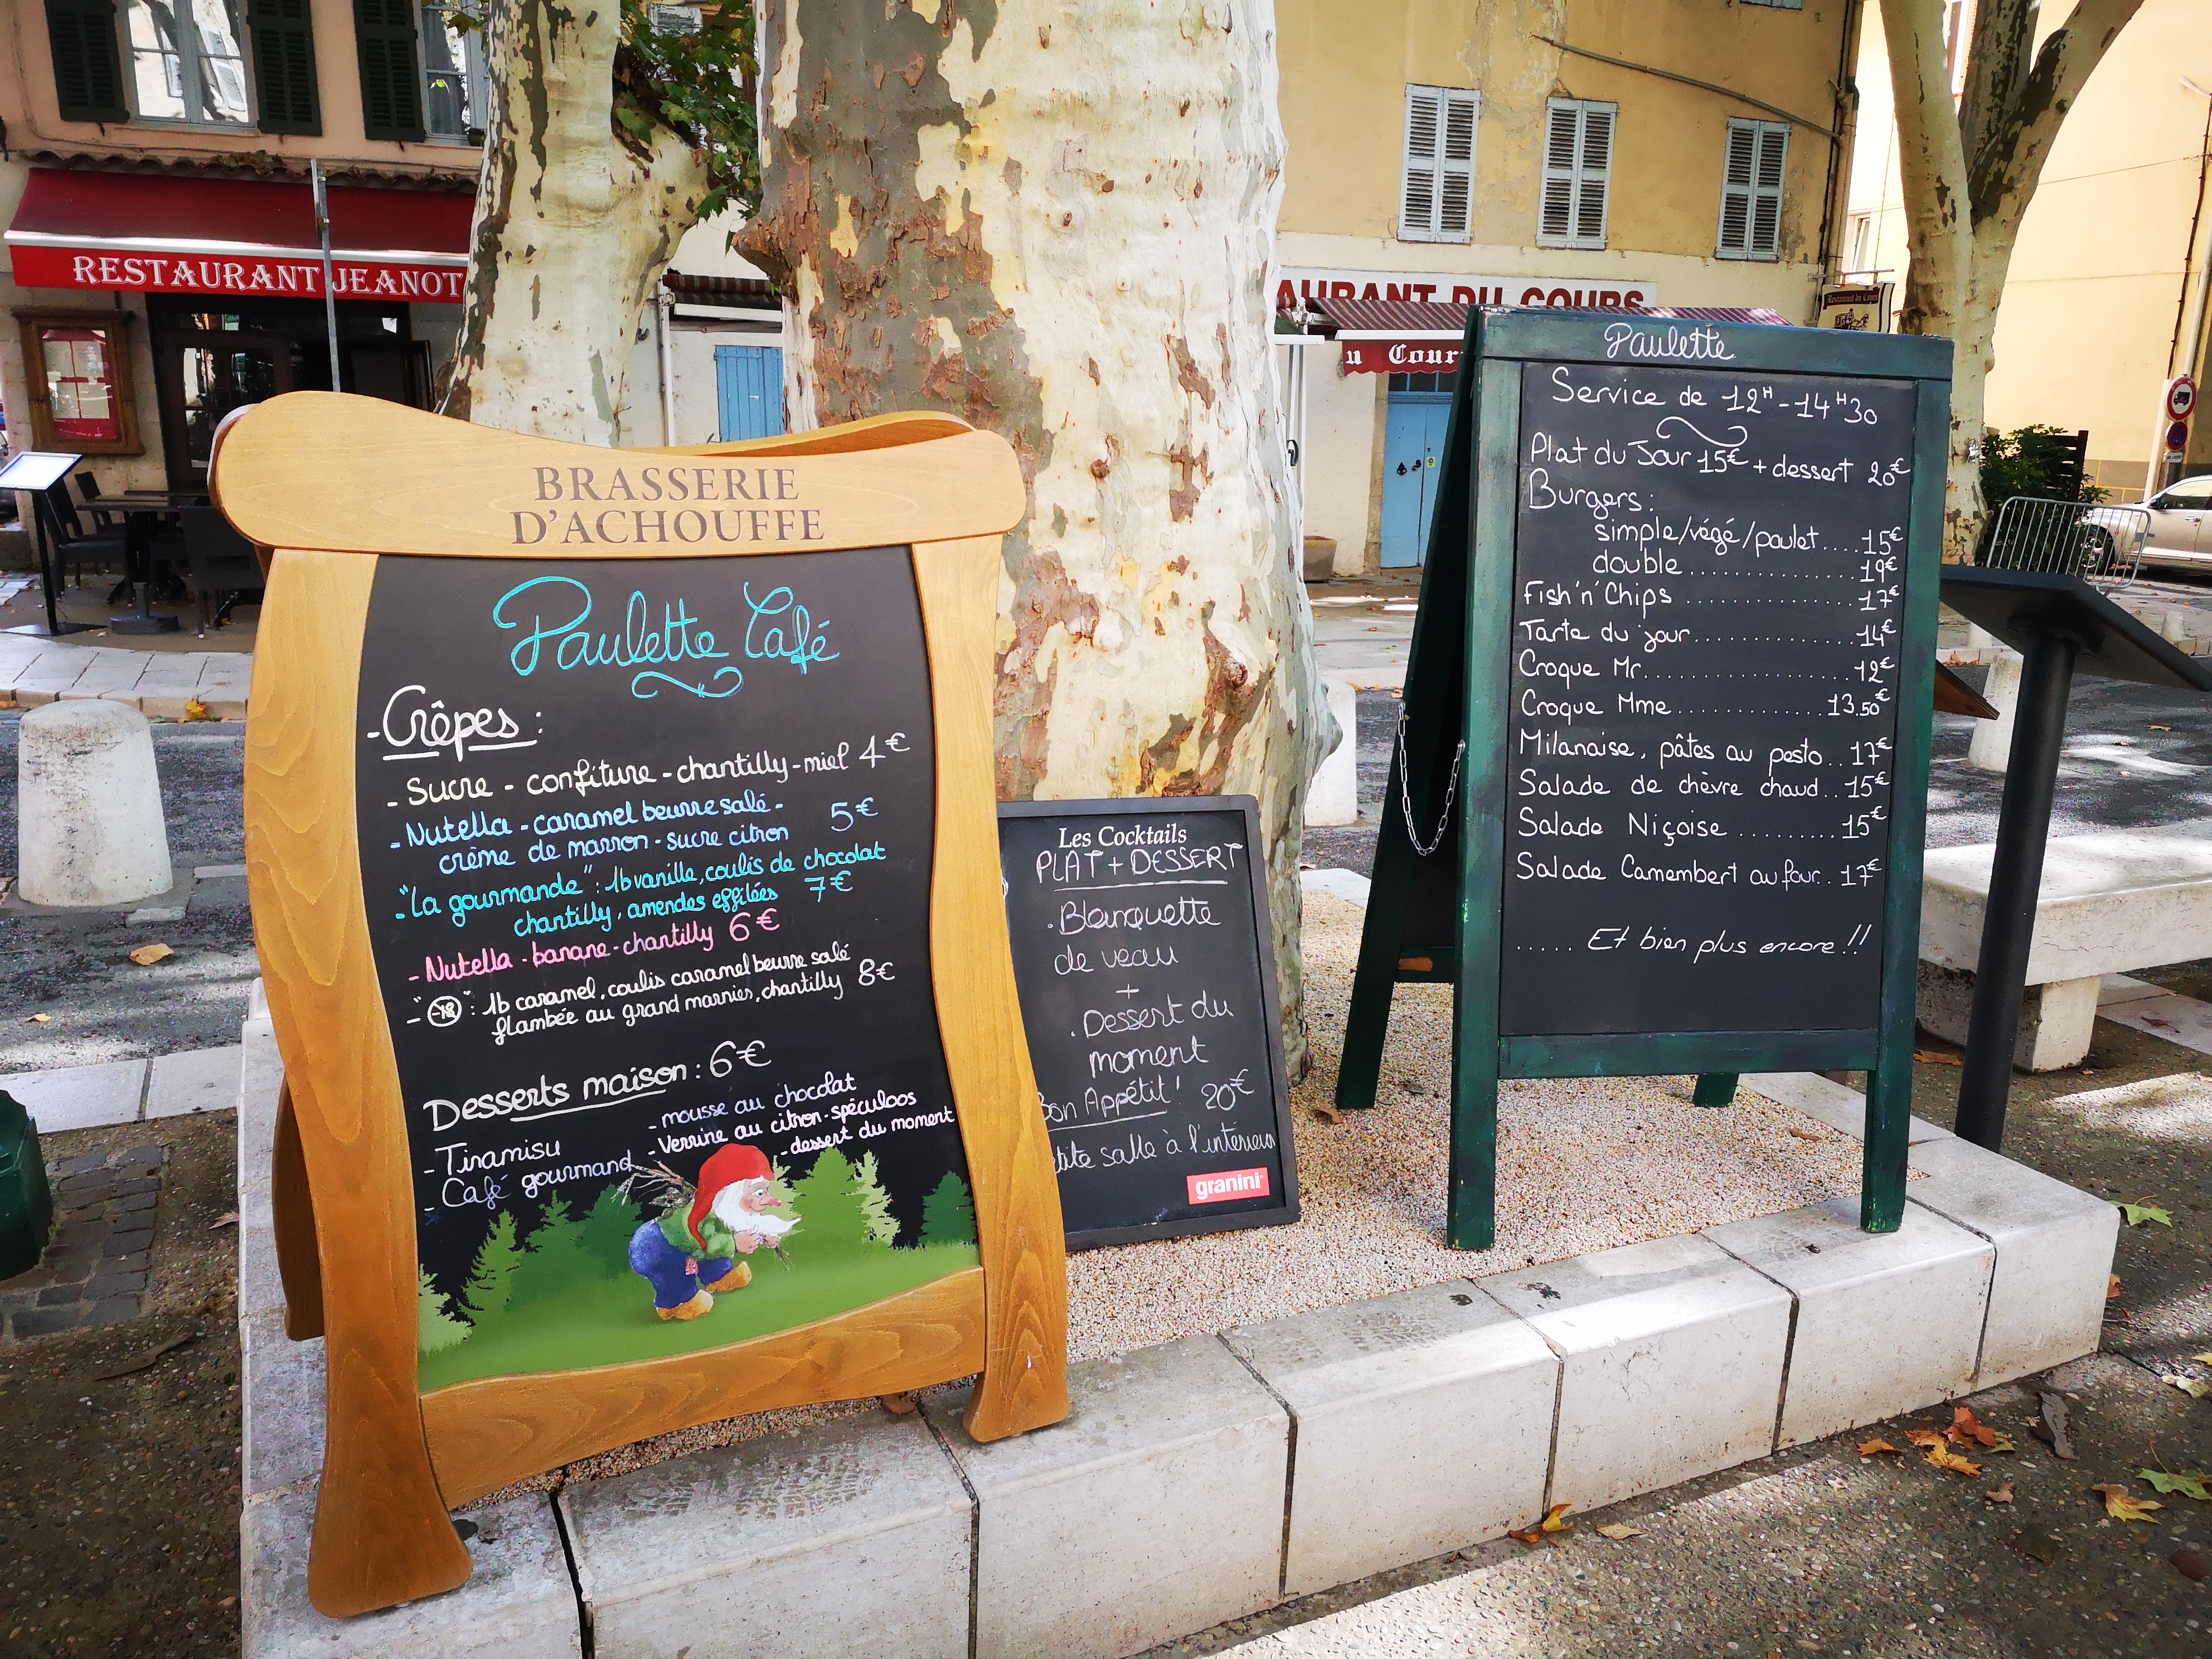 RESTAURANT JEANOT
AURANT DU COURS
u Cour
Restaurant du Cours
BRASSERIE
D'ACHOUFFE
Paulette Café
- Crêpes :
- Sucre - confiture - chantilly - miel 4€
- Nutella - caramel beurre salé -
crème de marron - sucre citron 5€
- "La gourmande" : 1b vanille, coulis de chocolat
chantilly, amendes effilées 7€
- Nutella - banane - chantilly 6€
- "-18" : 1b caramel, coulis caramel beurre salé
flambée au grand marnier, chantilly 8€
Desserts maison : 6€
- Tiramisu
- Café gourmand
- mousse au chocolat
- Verrine au citron - spéculoos
- dessert du moment
Les Cocktails
PLAT + DESSERT
. Blanquette
de veau
+
. Dessert du
moment
Bon Appétit ! 20€
tite salle à l'intérieur
granini
Paulette
Service de 12H - 14H30
Plat du Jour 15€ + dessert 20€
Burgers :
simple/végé/poulet....15€
double................19€
Fish'n'Chips ...............17€
Tarte du jour..............14€
Croque Mr..................12€
Croque Mme.............13.50€
Milanaise, pâtes au pesto..17€
Salade de chèvre chaud..15€
Salade Niçoise .........15€
Salade Camembert au four..17€
..... Et bien plus encore !!